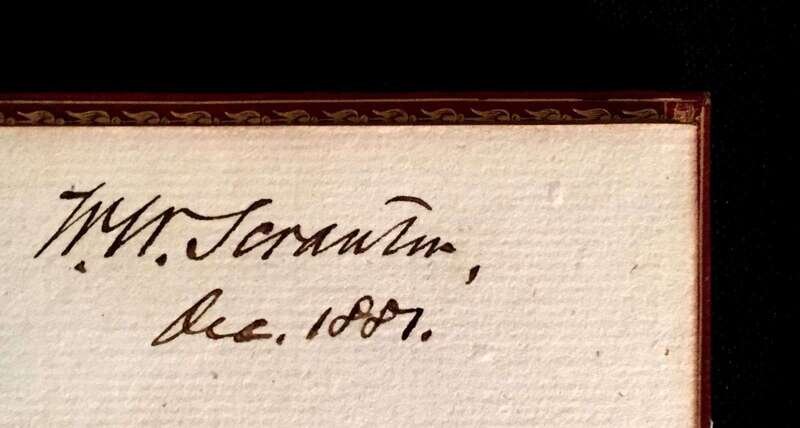 W. W. Scranton,
Dec. 1881.